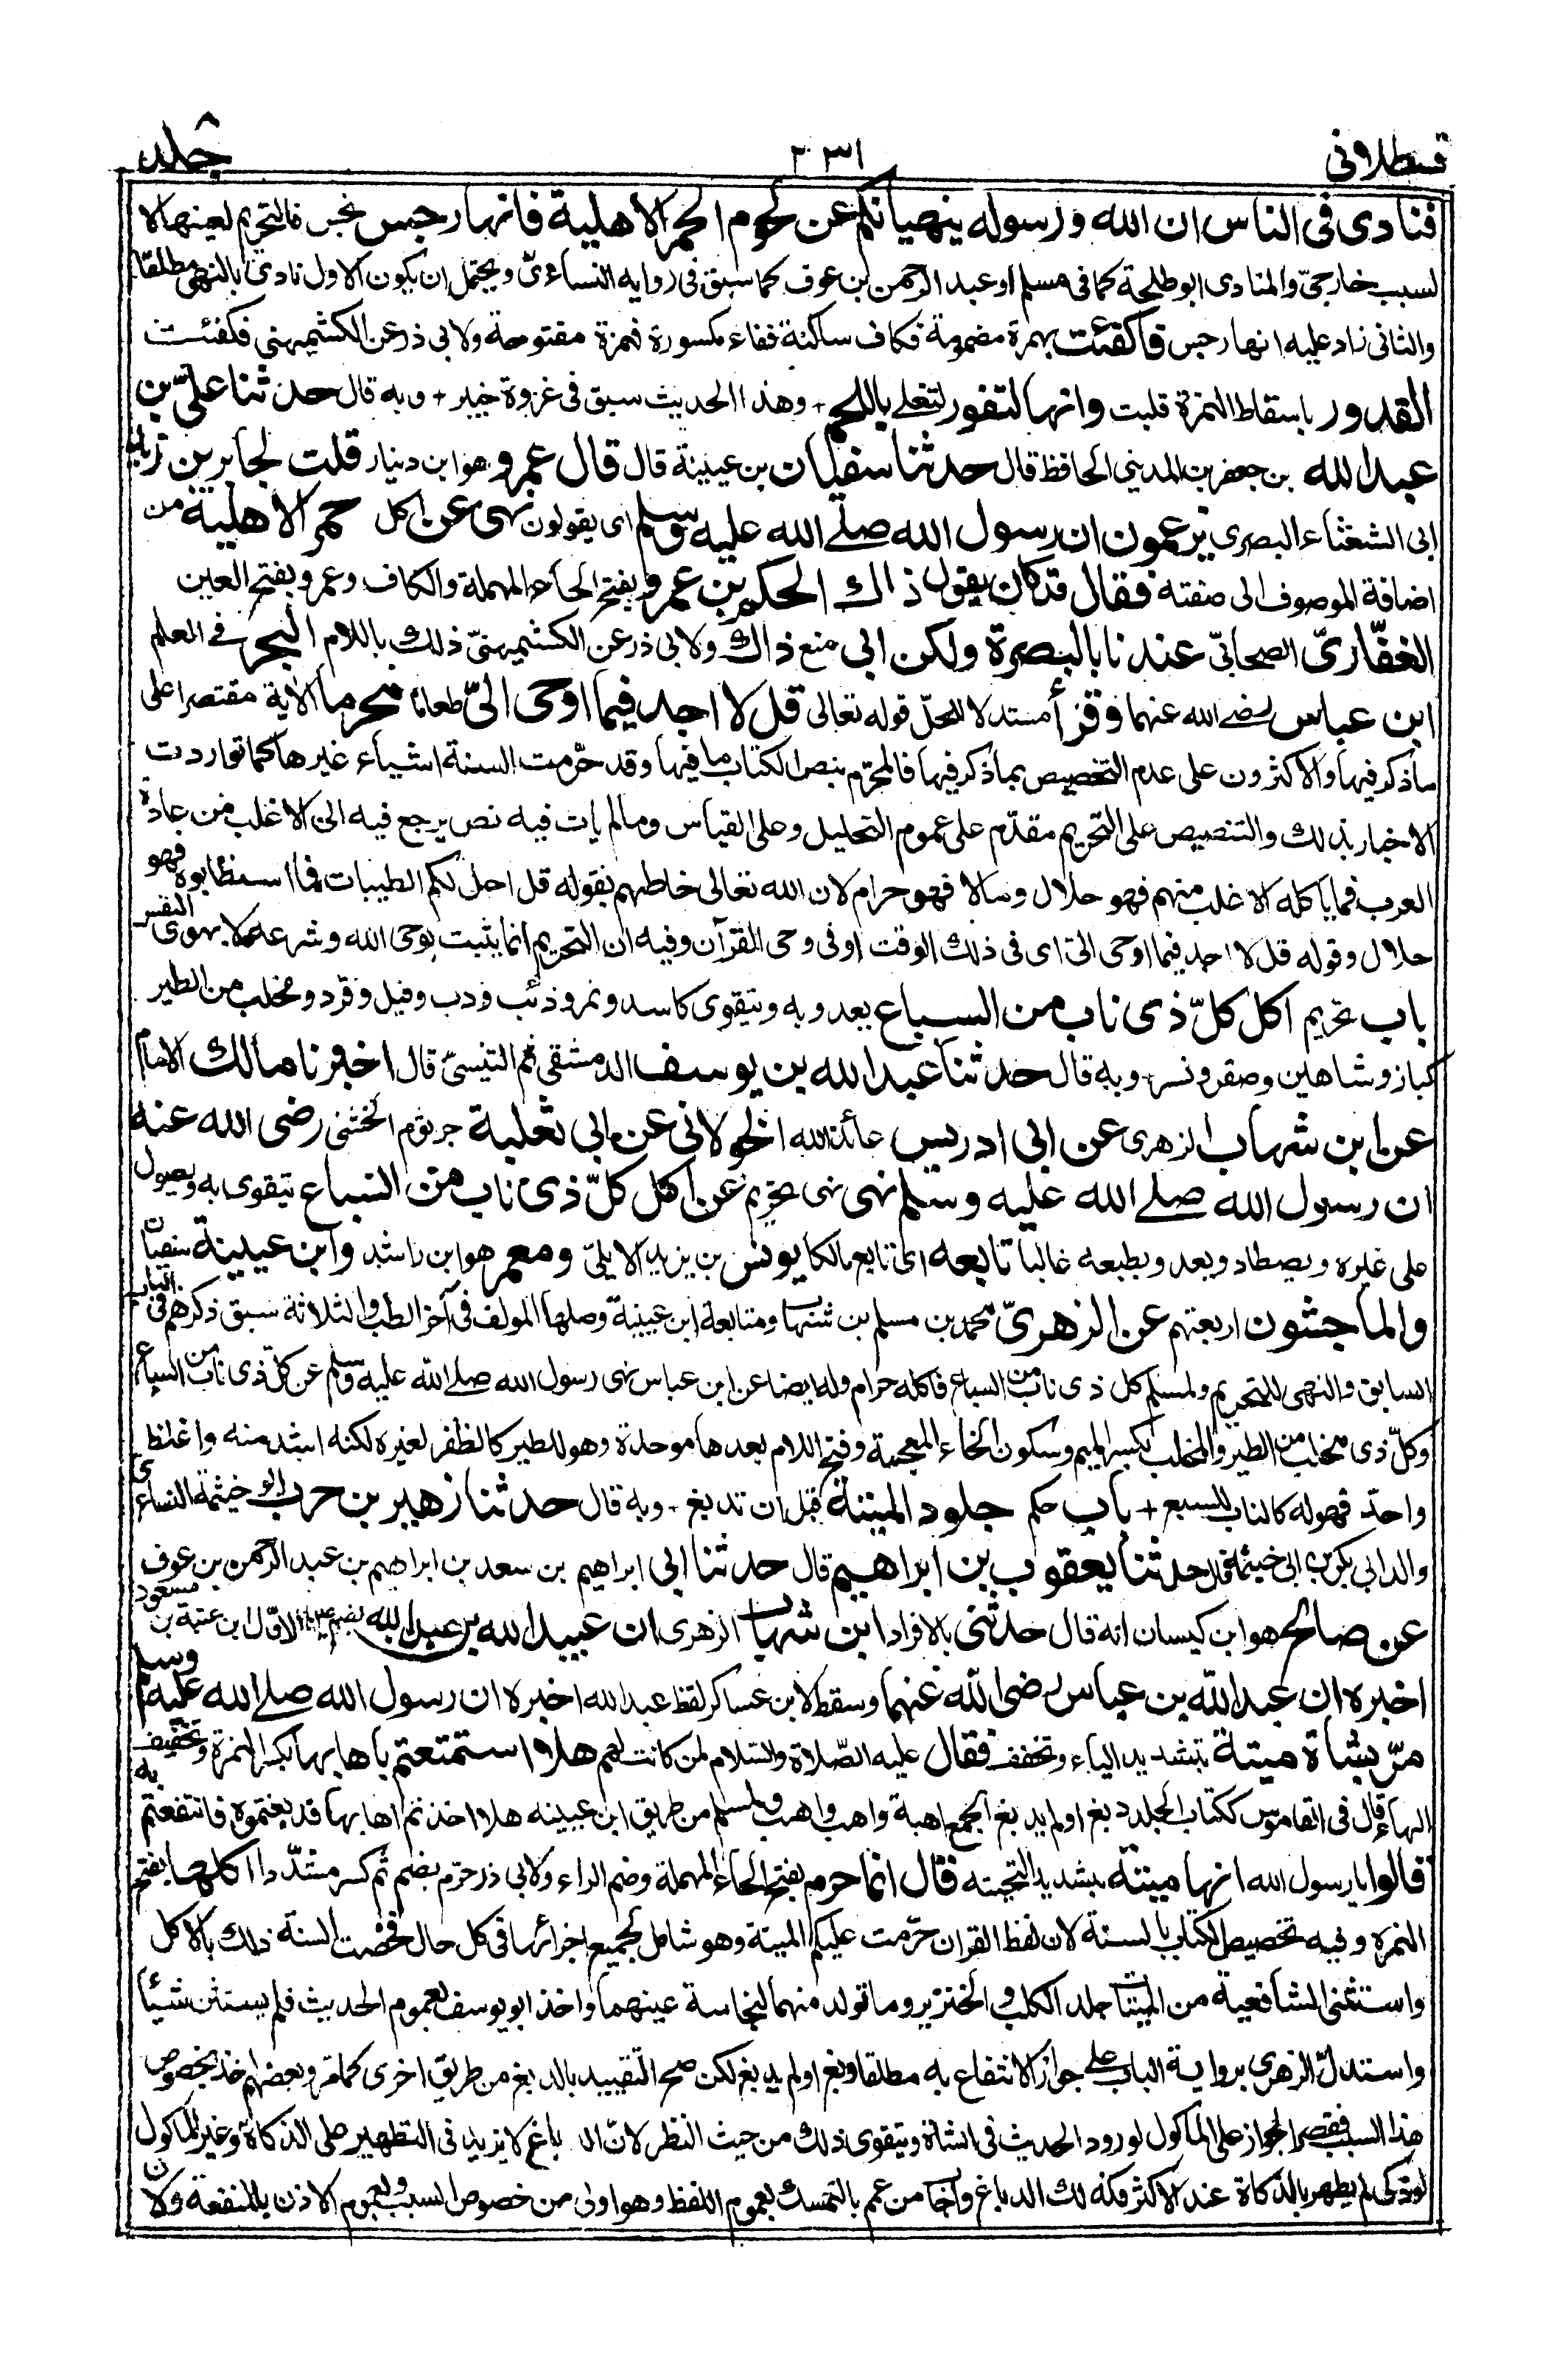 قسطلانی
٢٣١
جلد ٨
فنادى فى الناس ان الله ورسوله ينهيانكم عن لحوم الحمر الأهلية فانها رجس نجس فالتحريم لعينها لا
لسبب خارجىّ والمنادى ابو طلحة كما فى مسلم او عبد الرحمن بن عوف كما سبق فى رواية النساءىّ ويحتمل ان يكون الاول نادى بالنهى مطلقا
والثانى زاد عليه انها رجس فاكفئت بهمزة مضمومة فكاف ساكنة ففاء مكسورة فهمزة مفتوحة ولابى ذر عن الكشميهنى فكفئت
القدور باسقاط الهمزة قلبت وانها لتفور لتغلى باللحم + وهذا الحديث سبق فى غزوة خيبر + وبه قال حدثنا علىّ بن
عبد الله بن جعفر بن المديني الحافظ قال حدثنا سفيان بن عيينة قال قال عمرو هو ابن دينار قلت لجابر بن زيد
ابى الشعثاء البصرى يزعمون ان رسول الله صلے الله عليه وسلم اى يقولون نهى عن اكل حمر الاهلية من
اضافة الموصوف الى صفته فقال قد كان يقول ذاك الحكم بن عمرو بفتح الحاء المهملة والكاف وعمرو بفتح العين
الغفّارىّ الصحابىّ عندنا بالبصرة ولكن ابى منع ذاك ولابى ذر عن الكشميهنىّ ذلك باللام البحر فے العلم
ابن عباس رضے الله عنهما وقرأ مستدلا للحلّ قوله تعالى قل لا اجد فيما اوحى الىّ طعاما محرما الاية مقتصرا على
ماذكر فيها والاكثرون على عدم التخصيص بماذكر فيها فالمحرّم بنص الكتاب ما فيها وقد حرّمت السنة اشياء غيرها كما تواردت
الاخبار بذلك والتنصيص على التحريم مقدّم على عموم التحليل وعلى القياس ومالم يات فيه نص يرجع فيه الى الاغلب من عادة
العرب فما ياكله الاغلب منهم فهو حلال ومالا فهو حرام لان الله تعالى خاطبهم بقوله قل احل لكم الطيبات فما استطابوه فهو
حلال وقوله قل لا اجد فيما اوحى الىّ اى فى ذلك الوقت او فى وحى القرآن وفيه ان التحريم انما يثبت بوحى الله وشرعه لا بهوى النفس
باب تحريم اكل كلّ ذى ناب من السباع يعدو به ويتقوى كاسد ونمر وذئب ودب وفيل وقرد ومخلب من الطير
كباز وشاهين وصقر ونسر + وبه قال حدثنا عبد الله بن يوسف الدمشقى ثم التنيسىّ قال اخبرنا مالك الامام
عن ابن شهاب الزهرى عن ابى ادريس عائذ الله الخولانى عن ابى ثعلبة جرثوم الخشنى رضى الله عنه
ان رسول الله صلے الله عليه وسلم نهى نهى تحريم عن اكل كلّ ذى ناب من السباع يتقوى به ويصول
على غيره ويصطاد ويعدو بطبعه غالبا تابعه اى تابع مالكا يونس بن يزيد الايلىّ ومعمر هو ابن راشد وابن عيينة سفيان
والماجشون اربعتهم عن الزهرىّ محمد بن مسلم بن شهاب ومتابعة ابن عيينة وصلها المولف فى آخر الطب والثلاثة سبق ذكرهم فى الباب
السابق والنهى للتحريم ولمسلم كل ذى ناب من السباع فاكله حرام وله ايضا عن ابن عباس نهى رسول الله صلے الله عليه وسلم عن كلّ ذى ناب من السباع
وكلّ ذى مخلب من الطير والمخلب بكسر الميم وسكون الخاء المعجمة وفتح اللام بعدها موحدة وهو للطير كالظفر لغيره لكنه اشد منه واغلظ
واحدّ فهو له كالناب للسبع + باب حكم جلود الميتة قبل ان تدبغ + وبه قال حدثنا زهير بن حرب ابو خيثمة النساءى
والد ابى بكر بن ابى خيثمة قال حدثنا يعقوب بن ابراهيم قال حدثنا ابى ابراهيم بن سعد بن ابراهيم بن عبد الرحمن بن عوف
عن صالح هو ابن كيسان انه قال حدثنى بالافراد ابن شهاب الزهرى ان عبيد الله بن عبد الله بضم عين الاوّل ابن عتبة بن مسعود
اخبره ان عبد الله بن عباس رضى الله عنهما وسقط لابن عساكر لفظ عبد الله اخبره ان رسول الله صلے الله عليه وسلم
مرّ بشاة ميتة بتشديد الياء وتخفف فقال عليه الصّلاة والسّلام لمن كانت لهم هلا استمتعتم باهابها بكسر الهمزة وتخفيف
الهاء قال فى القاموس ككتاب الجلد دبغ اولم يدبغ الجمع اهبة واهب واهب ولمسلم من طريق ابن عيينه هلا اخذتم اهابها فدبغتموه فانتفعتم به
قالوا يا رسول الله انها ميتة بتشديد التحتيه قال انما حرم بفتح الحاء المهملة وضم الراء ولابى ذر حرّم بضم ثم كسر مشدّدا اكلها بفتح
الهمزه وفيه تخصيص الكتاب بالسنة لان لفظ القران حرّمت عليكم الميتة وهو شامل لجميع اجزائها فى كل حال فخصت السنة ذلك بالاكل
واستثنى الشافعية من الميتات جلد الكلب والخنزير وما تولد منهما لنجاسة عينهما واخذ ابو يوسف بعموم الحديث فلم يستثن شيئا
واستدلّ الزهرى برواية الباب على جواز الانتفاع به مطلقا دبغ اولم يدبغ لكن صح التقييد بالدبغ من طريق اخرى كما مر وبعضهم اخذ بخصوص
هذا السبب فقصر الجواز على الماكول لورود الحديث فى الشاة ويتقوى ذلك من حيث النظر لانّ الدباغ لا يزيد فى التطهير على الذكاة وغير المأكول
لوذكى لم يطهر بالذكاة عند الاكثر فكذلك الدباغ واجاب من عمم بالتمسك بعموم اللفظ وهو اولى من خصوص السبب وبعموم الاذن بالمنفعة ولان